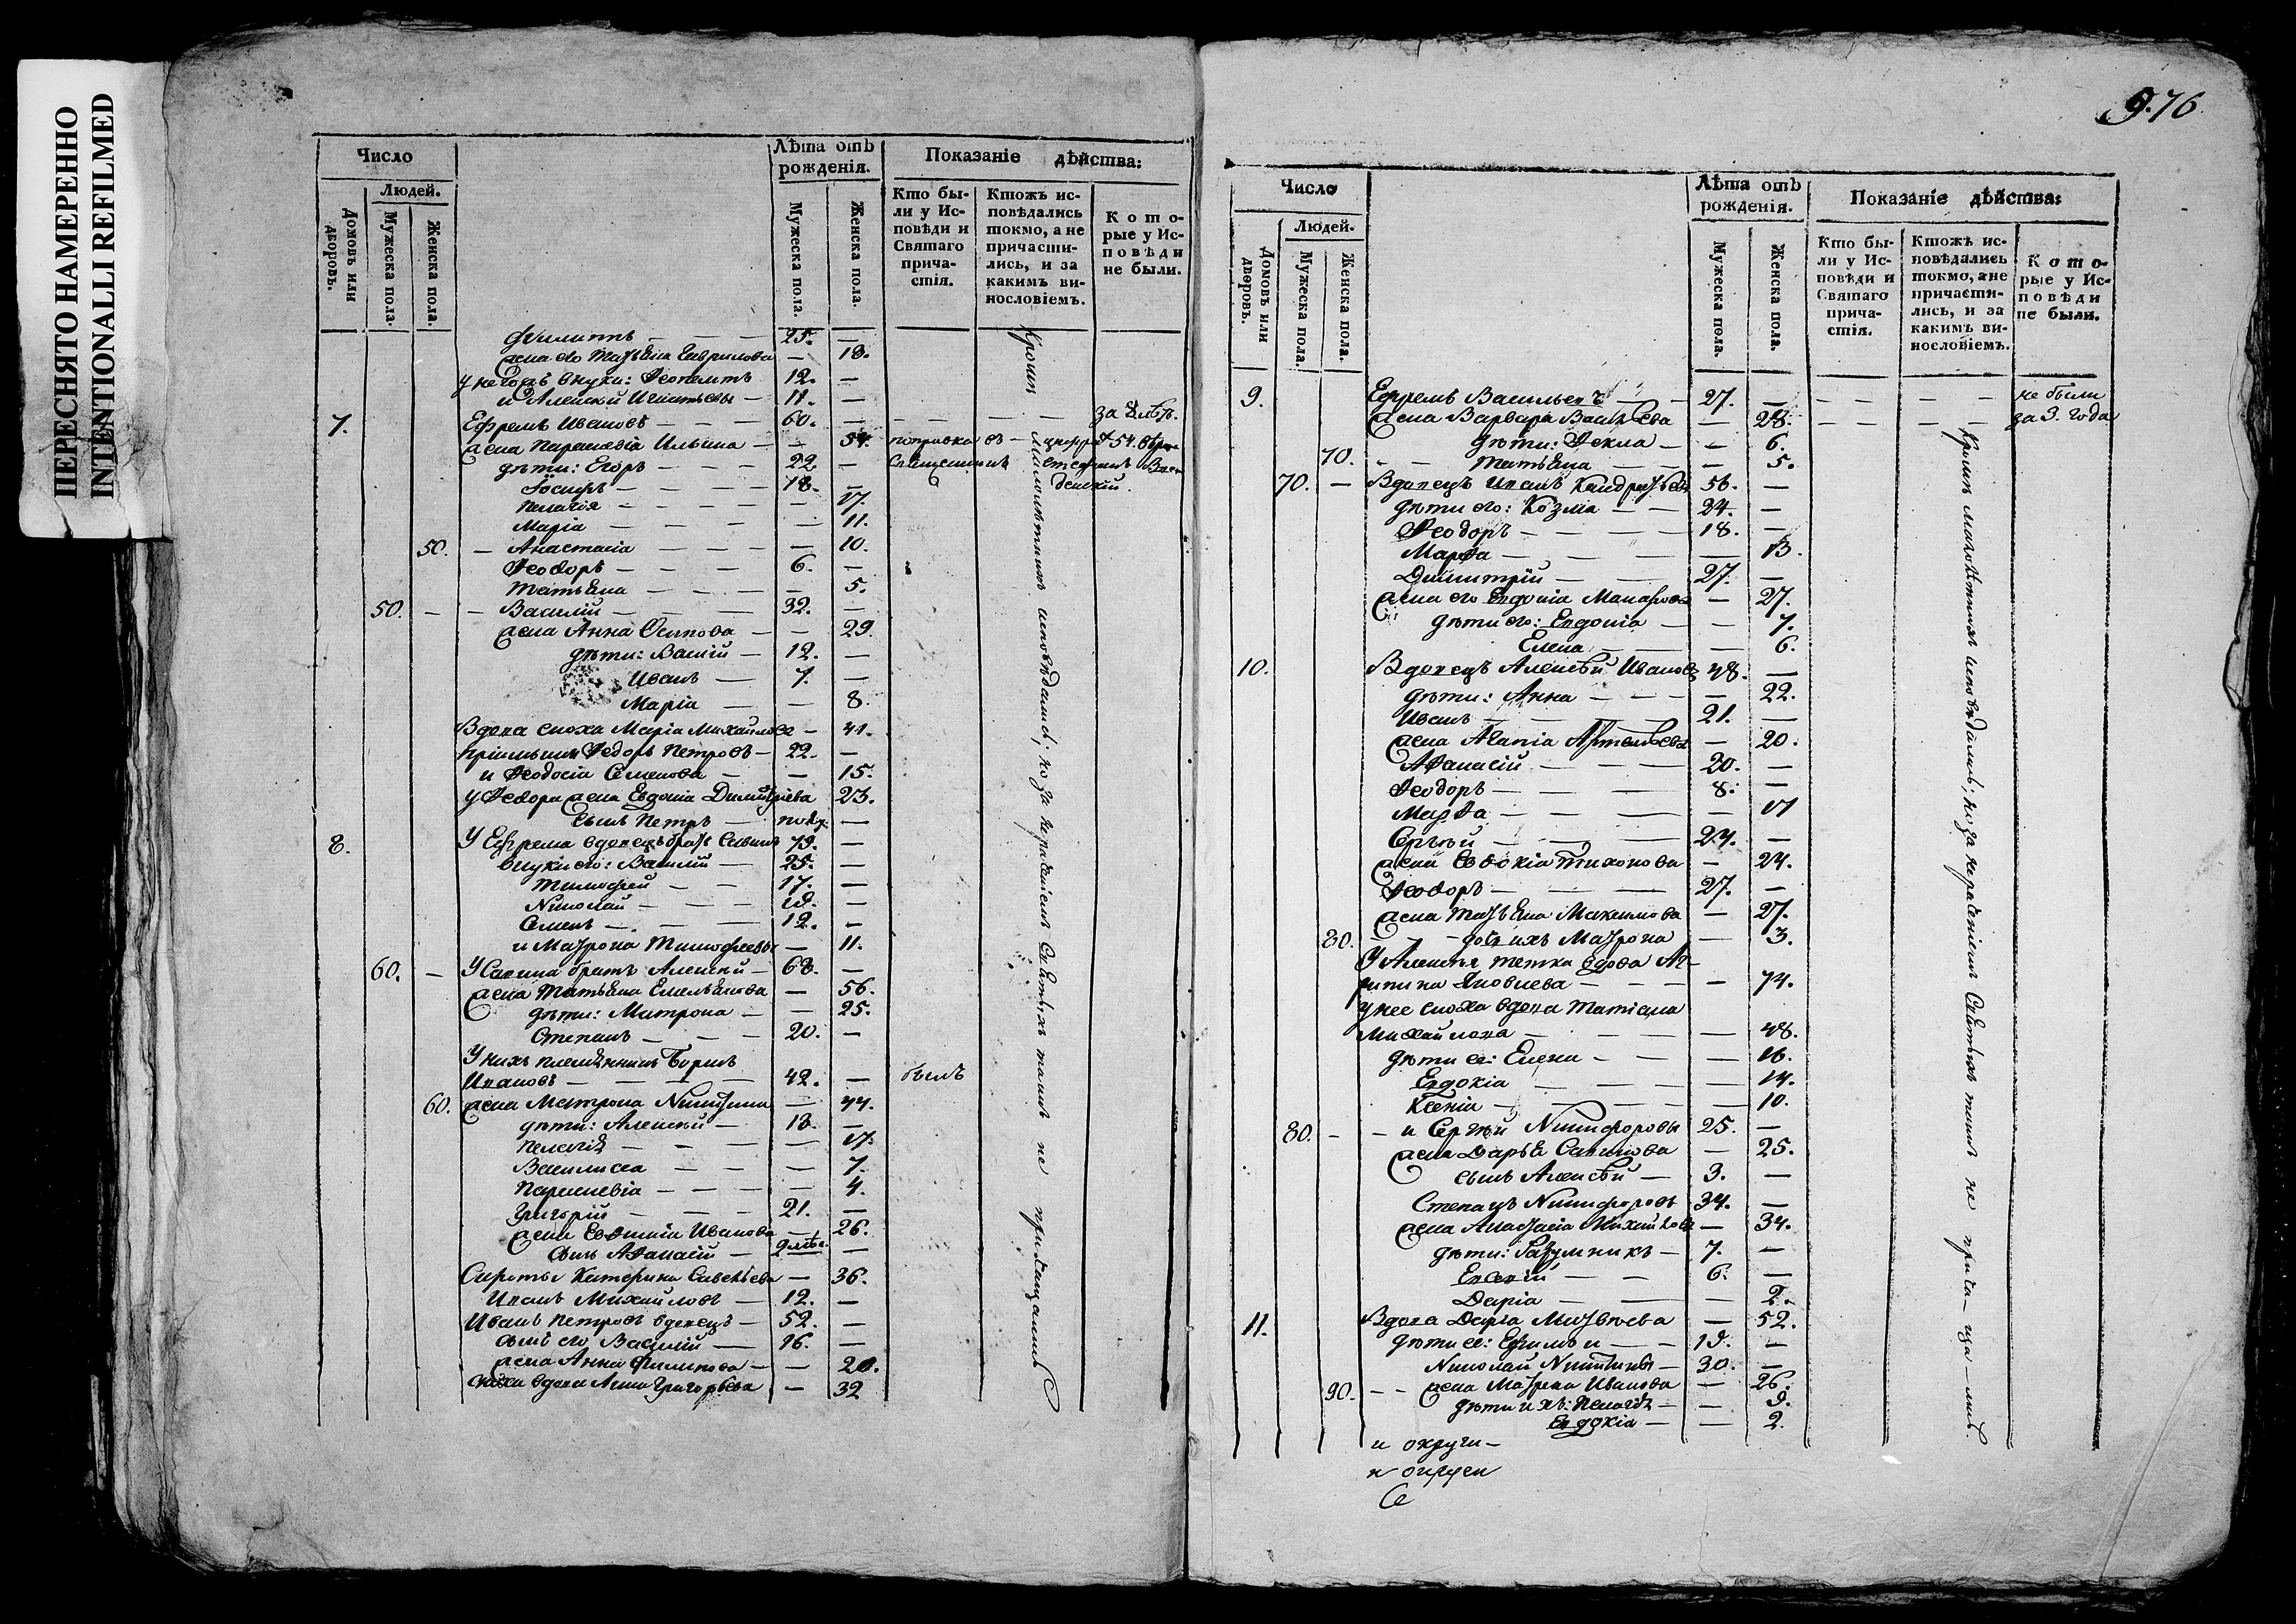 ПЕРЕСНЯТО НАМЕРЕННО
INTENTIONALLI REFILMED
Число
Людей.
Домовъ или дворовъ.
Мужеска пола.
Женска пола.
Лѣта отъ рожденія.
Мужеска пола.
Женска пола.
Показаніе дѣйства:
Кто были у Исповѣди и Святаго причастія.
Ктожъ исповѣдались токмо, а не причастились, и за какимъ винословіемъ.
Которые у Исповѣди не были.
Филиппъ — 25. —
жена его Татьяна Гаврилова — 18.
у негожъ внуки: Ѳеопемптъ 12. —
и Алексѣй Игнатьевы — 11. —
7. Ефремъ Ивановъ — 60. — за 2 лѣтъ.
жена Параскевія Ильина — 54. поправка въ цифрѣ 54. вѣрна
дѣти: Егоръ — 22 — Священникъ Стефанъ
Іосифъ — 18. —
Пелагія — 17.
Марія — 11.
50. — Анастасія — 10.
Ѳеодоръ — 6. —
Татьяна — 5.
50. — Василій — 32. —
жена Анна Осипова — 29.
дѣти: Василій — 12. —
Иванъ — 7. —
Марія — 8.
Вдова сноха Марія Михайлова — 41.
Ѳедоръ Петровъ — 22. —
и Ѳеодосія Семенова — 15.
у Ѳедора жена Евдокія Димитріева 23.
сынъ Петръ — полг. —
8. У Ефрема вдовецъ братъ 79. —
внуки его: Василій — 25. —
Тимофей — 17. —
Николай —
Семенъ — 12. —
и Матрона Тимофеевы — 11.
60. — У Савина братъ Алексѣй — 68. —
жена Татьяна Емельянова — 56.
дѣти: Матрона — 25.
Степанъ — 20. —
У нихъ племянникъ Борисъ
Ивановъ — 42. — былъ
60. жена Матрона Никитина — 44.
дѣти: Алексѣй — 13. —
Пелагія — 17.
Василиса — 7.
Параскевія — 4.
Григорій — 21. —
жена Евѳимія Иванова — 26.
сынъ Аѳанасій —
Сироты Катерина Савельева — 36.
Иванъ Михайловъ — 12. —
Иванъ Петровъ вдовецъ — 52. —
сынъ его Василій — 16. —
жена Анна Филипова — 20.
сноха вдова Анна Григорьева — 32
Кромѣ Малолѣтнихъ исповѣдались; но за нерадѣніемъ Святыхъ таинъ не причащались
9. 76
Число
Людей.
Домовъ или дворовъ.
Мужеска пола.
Женска пола.
Лѣта отъ рожденія.
Мужеска пола.
Женска пола.
Показаніе дѣйства:
Кто были у Исповѣди и Святаго причастія.
Ктожъ исповѣдались токмо, а не причастились, и за какимъ винословіемъ.
Которые у Исповѣди не были.
9. Ефремъ Васильевъ — 27. — не были
жена Варвара Васильева — 28. — за 3. года
дѣти: Ѳекла — 6.
70. — Татьяна — 5.
70. — Вдовецъ Иванъ Кандратьевъ 56. —
дѣти его: Козма — 24. —
Ѳеодоръ — 18. —
Марѳа — 13.
Димитрій — 27. —
жена его Евдокія Макарова — 27.
дѣти его: Евдокія — 7.
Елена — 6.
10. Вдовецъ Алексѣй Ивановъ 48. —
дѣти: Анна — 22.
Иванъ — 21. —
жена Агапія Артемьева — 20.
Аѳанасій — 20. —
Ѳеодоръ — 8. —
Марѳа — 17
Сергѣй — 24. —
жена Евдокія Тихонова — 24.
Ѳеодоръ — 27. —
жена Татьяна Максимова — 27.
80. — дочь ихъ Матрона — 3.
У Алексѣя тетка вдова Аг-
рипина Яковлева — 74.
у нее сноха вдова Татіана
Михайлова — 48.
дѣти ее: Елена — 16.
Евдокія — 14.
Ксенія — 10.
80. — и Сергѣй Никифоровы 25. —
жена Дарья Савинова — 25.
сынъ Алексѣй — 3. —
Степанъ Никифоровъ 34. —
жена Анастасія Михайлова — 34.
дѣти: Разумникъ — 7. —
Евсевій — 6. —
Дарія — 2.
11. Вдова Дарія Матвѣева — 52.
дѣти ее: Ефимъ и — 19. —
Николай Никитины — 30. —
90. — жена Матрена Иванова — 26.
дѣти ихъ: Пелагія — 9.
Евдокія — 2.
Кромѣ малолѣтнихъ исповѣдались; но за нерадѣніемъ Святыхъ таинъ не прича-ща-лись.
и округи-
и округи
Се